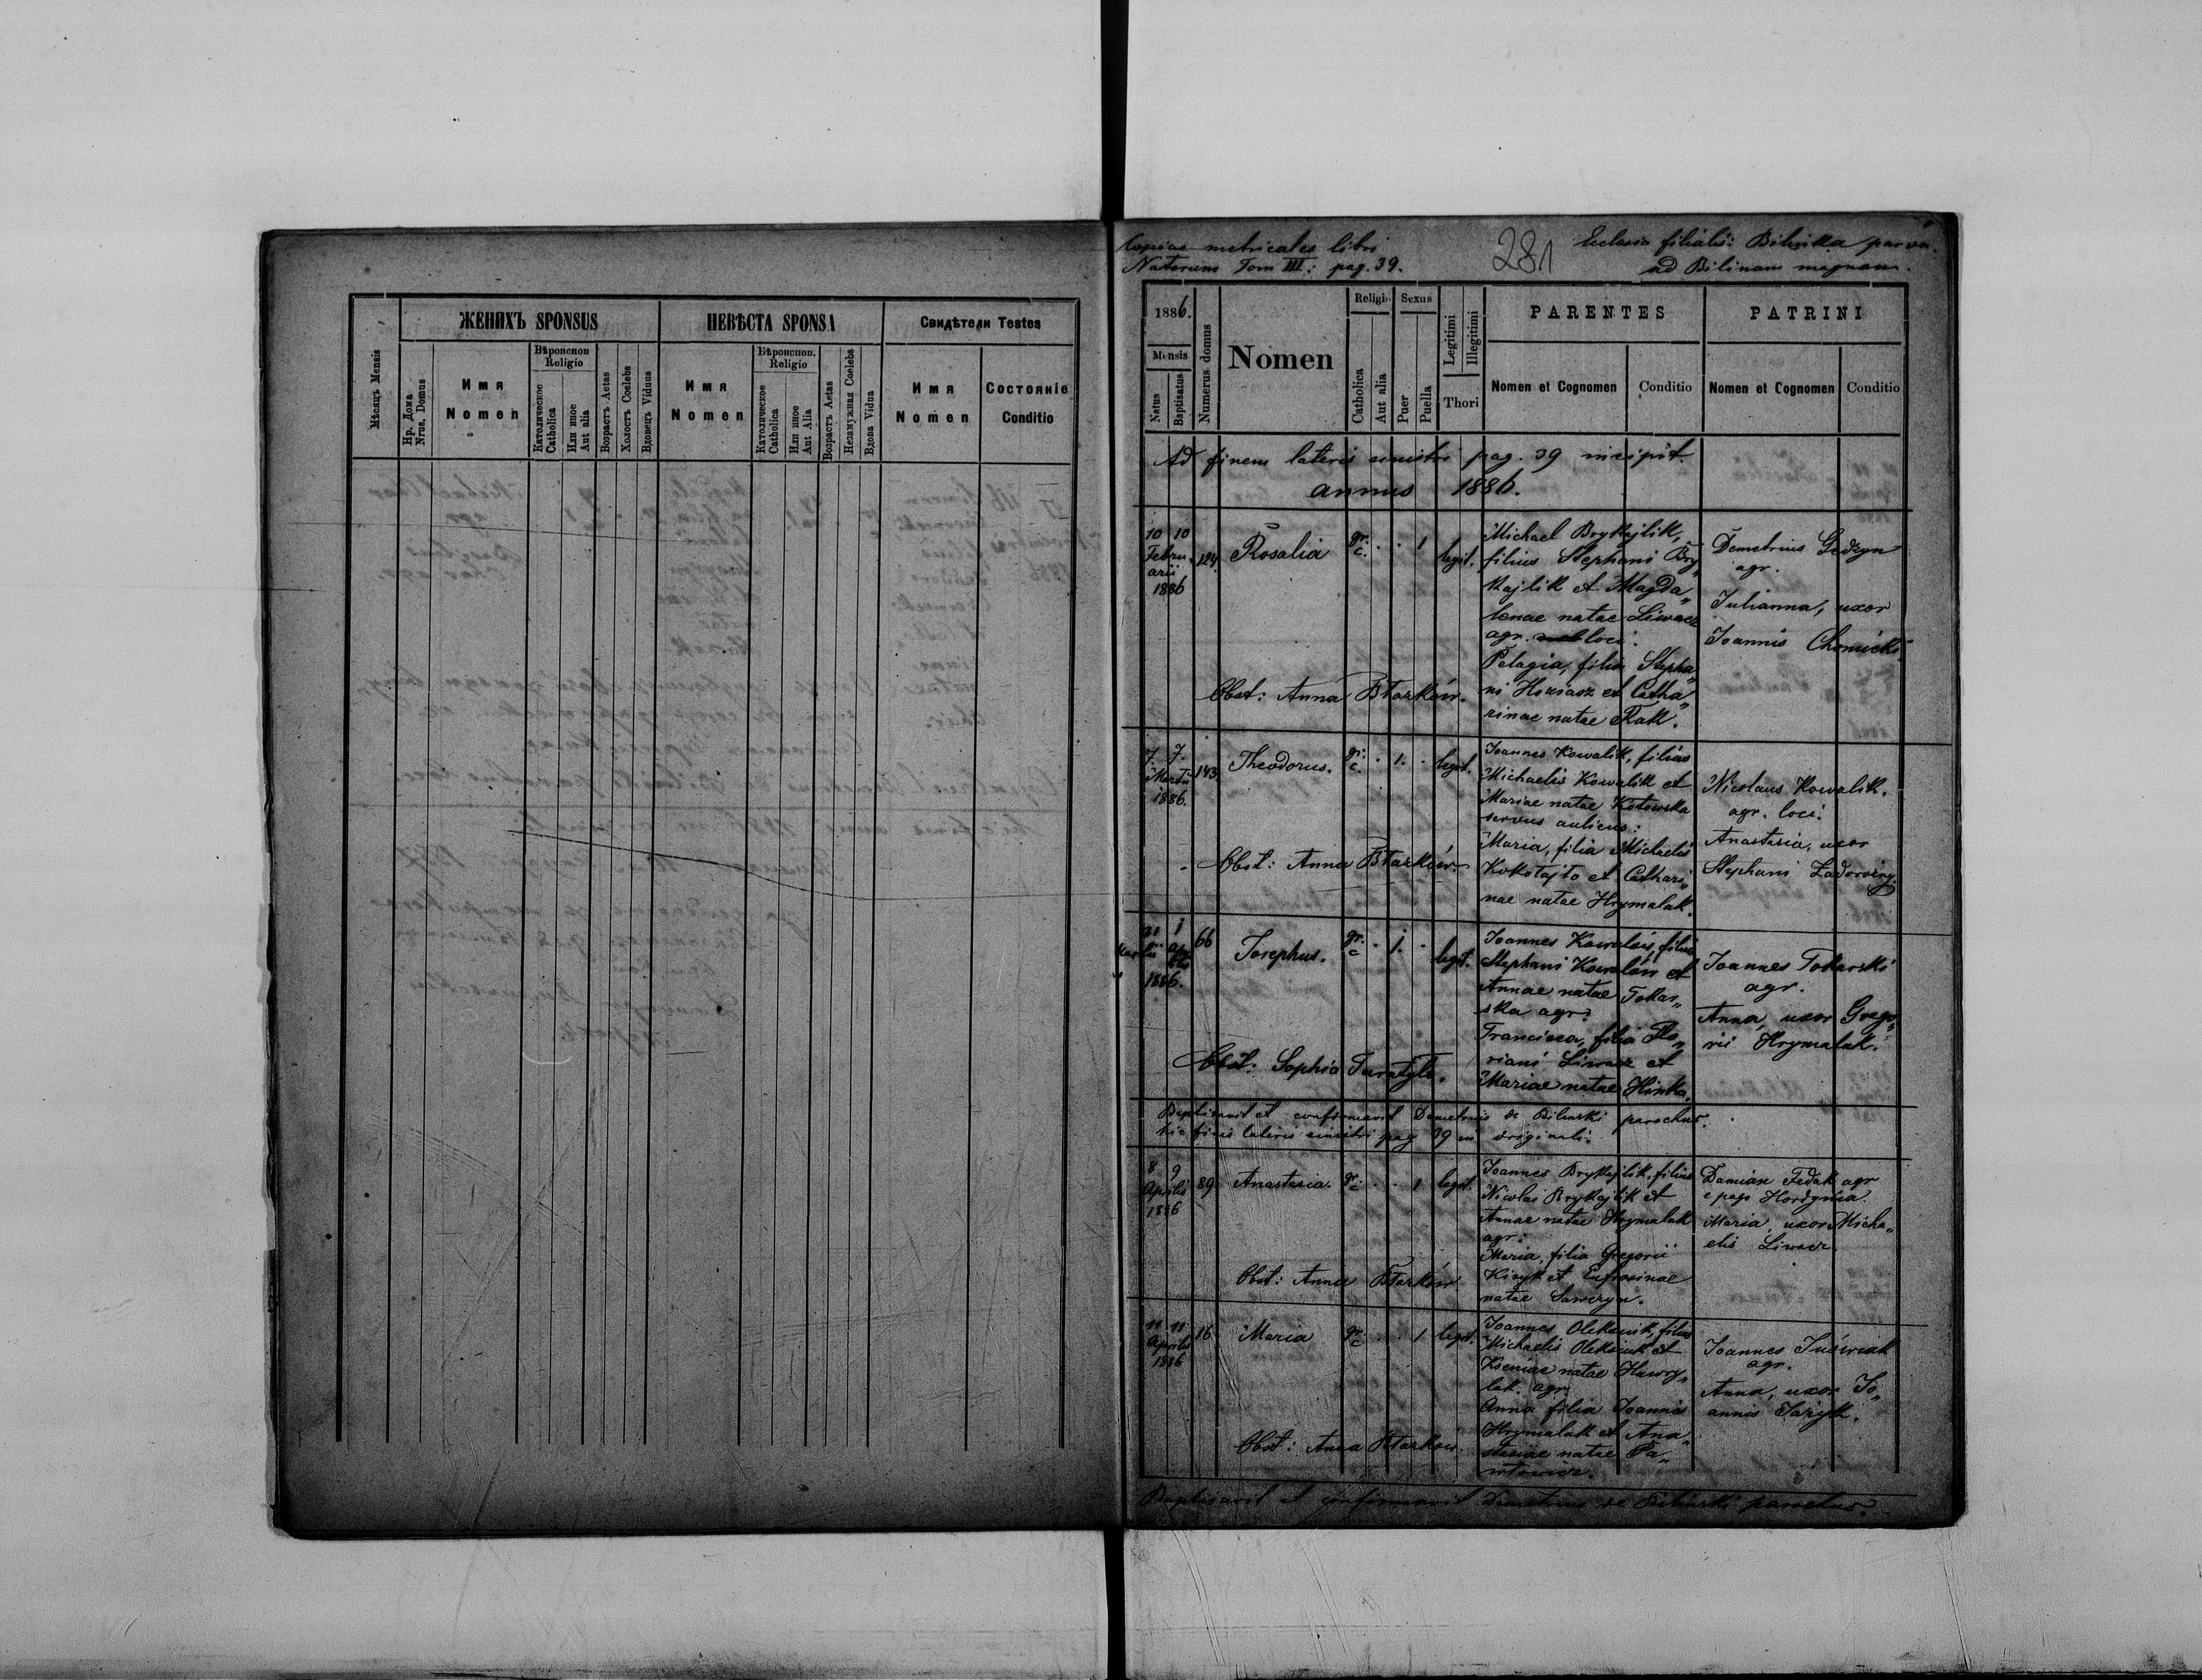 ЖЕНИХЪ SPONSUS
НЕВѢСТА SPONSA
Свидѣтели Testes
Мѣсяцъ Mensis
Нр. Дома
Nrus. Domus
Имя
Nomen
Вѣроиспов
Religio
Католическое
Catholica
Или иное
Aut alia
Возрастъ Aetas
Холостъ Coelebs
Вдовецъ Viduus
Имя
Nomen
Вѣроиспов.
Religio
Католическое
Catholica
Или иное
Aut Alia
Возрастъ Aetas
Незамужная Coelebs
Вдова Vidua
Имя
Nomen
Состояніе
Conditio
Copiae metricales libri
Natorum Tom III: pag. 39.
281
Eclesia filialis: Bilinka parva
ad Bilinam magnam.
1886.
Mensis
Natus
Baptisatus
Numerus domus
Nomen
Religio
Catholica
Aut alia
Sexus
Puer
Puella
Legitimi
Illegitimi
Thori
PARENTES
Nomen et Cognomen
Conditio
PATRINI
Nomen et Cognomen
Conditio
Ad finem lateris sinistri pag. 39 incipit
annus 1886.
10 10
Febru
arii
1886
124
Rosalia
gr.
c.
1
legit.
Michael Brykajlik,
filius Stephani Bry„
kajlik et Magda„
lenae natae Liwacz
agr. loci.
Pelagia, filia Stepha„
ni Hziasz et Catha„
rinae natae Rak.
Demetrius Gedzyn
agr.
Julianna, uxor
Joannis Chomicki
Obst: Anna Błazków.
7. 7.
Martii
1886.
143
Theodorus.
gr.
c.
1.
legit.
Joannes Kowalik, filius
Michaelis Kowalik et
Mariae natae Kotowska
servus aulicus:
Maria, filia Michaelis
Kokotajło et Cathari„
nae natae Hrymalak.
Nicolaus Kowalik.
agr. loci.
Anastasia, uxor
Stephani Zadorożny
Obst: Anna Błazków.
31 1
1886.
66
Josephus.
gr.
c
1.
legit.
Joannes Kowalów, filius
Stephani Kowalów et
Annae natae Tokar„
ska agr.
Francisca, filia Flo„
riani Liwacz et
Mariae natae Hinka.
Joannes Tokarski
agr.
Anna, uxor Grego„
rii Hrymalak.
Obst: Sophia
Baptisavit et confirmavit Demetrius de Bilinski parochus.
Hic finis lateris sinistri pag 39 in originali.
8 9
Aprilis
1886
89
Anastasia.
gr.
c
1
legit.
Joannes Brykajlik, filius
Nicolai Brykajlik et
Annae natae Hrymalak
agr:
Maria, filia Gregorii
Kizyk et Eufrosinae
natae Sawczyn.
Damian Fedak agr
e pago Hordynia.
Maria, uxor Micha„
elis Liwacz.
Obst: Anna Błazków
11 11
Aprilis
1886
16
Maria
gr.
c
1
legit.
Joannes Oleksiuk, filius
Michaelis Oleksiuk et
Kseniae natae Hawry„
lak. agr.
Anna filia Joannis
Hrymalak et Ana„
stasiae natae Pa„
włowicz.
Joannes
agr.
Anna, uxor Jo„
annis
Obst: Anna Błazków.
Baptisavit et confirmavit Demetrius de Bilinski parochus.